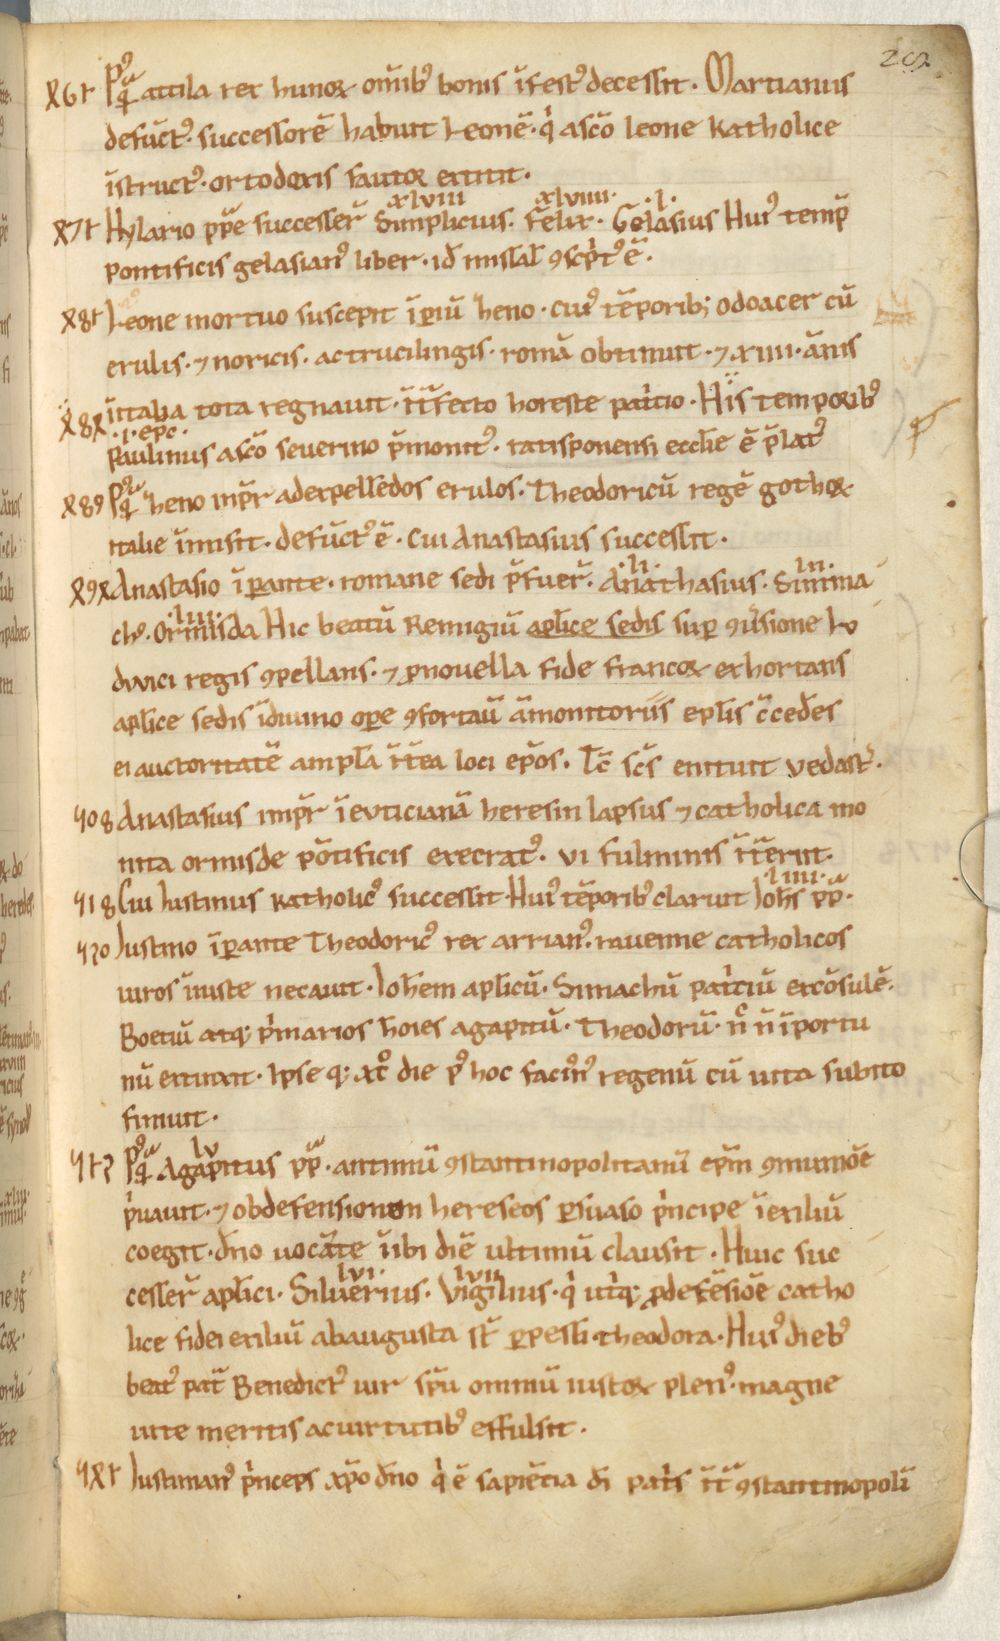 202
461 Postquam attila rex hunoꝝ omībꝰ bonis īfestꝰ decessit. Martianus
defūctꝰ. successorē habuit Leonē. qͥ a scō leone katholice
īstructꝰ. ortodoxis fautoꝛ extitit.
xlviii xlviiii. .l.
471 Hylario pp̄e successer̄ Simplicius. Felix. Gelasius Huiꝰ temp̄
pontificis gelasianꝰ liber. id̄ missał ꝯscͥptꝰ ē.
481 Leone mortuo suscepit īꝑiū heno. cuiꝰ tēporib; odoacer cū
erulis. ⁊ noricis. ac trucilingis. romā obtinuit. ⁊ xiiii. ānis
ittalia tota regnauit. īt̄fecto horeste patͥcio. His temporibꝰ
484 .i. ep̄c.
paulinus a scō seuerino p̄monitꝰ. ratisponensi eccl̄ie ē p̄latꝰ
489 Postquam heno imp̄r ad expellēdos erulos. Theodoricū regē gothoꝝ
italie īmisit. defūctꝰ ē. cui Anastasius successit.
.li. .lii.
494 Anastasio īꝑante. romane sedi p̄fuer̄. Anathasius. Simma
.liii.
chꝰ. Ormisda Hic beatū Remigiū apl̄ice sedis suꝑ ꝯūsione lu
diuici regis ꝯpellans. ⁊ ꝓ nouella fide francoꝝ exhortans
apl̄ice sedis ī diuino oꝑe ꝯfortauͥ āmonitoriis epl̄is c̄cedēs
ei auctoritatē amplā īt̄ ea loci ep̄os. Tc̄ sc̄s enituit vedastꝰ.
508 Anastasius imp̄r ī euticianā heresin lapsus ⁊ catholica mo
nita ormisde pōtificis execratꝰ. vi fulminis īt̄eriit.
.liiii.
518 Cui Iustinus katholicꝰ successit. Huiꝰ tēporibꝰ claruit Ioh̄s pp̄a.
520 Iustino īꝑante Theodoricꝰ rex arrianꝰ. rauenne catholicos
uiros īiuste necauit. Ioh̄em aplicū. Simachū patͥciū excōsulē.
Boetiū atq; pͥmarios hoīes agapitū. Theodorū. n̄ īportu
nū extinxit. Ipse q; xcͦ die pꝰ hoc facinꝰ regenū cū uita subito
finiuit.
lv
512 Postquam Agapitus pp̄a. antimū ꝯstantinopolitanū ep̄m ꝯmuniōe
pͥuauit. ⁊ ob defensionem hereseos ꝑsuaso pͥncipe ī exiliū
coegit. dn̄o uocāte īibi diē ultimū clausit. Huic suc
.lvi. lvii
cesser̄ apl̄ici. Siluerius. Vigilius. qͥ utͥq; ꝓ defēsiōe catho
lice fidei exiliū ab augusta st̄ ꝑpessi. theodora. Huiꝰ diebꝰ
beatꝰ pat̄ Benedictꝰ uir sp̄u omniū iustoꝝ plenꝰ. magne
uite meritis ac uirtutibꝰ effulsit.
541 Iustinianꝰ pͥnceps xp̄o dn̄o qͥ ē sapiētia dī patͥs īt̄ ꝯstantinopolī